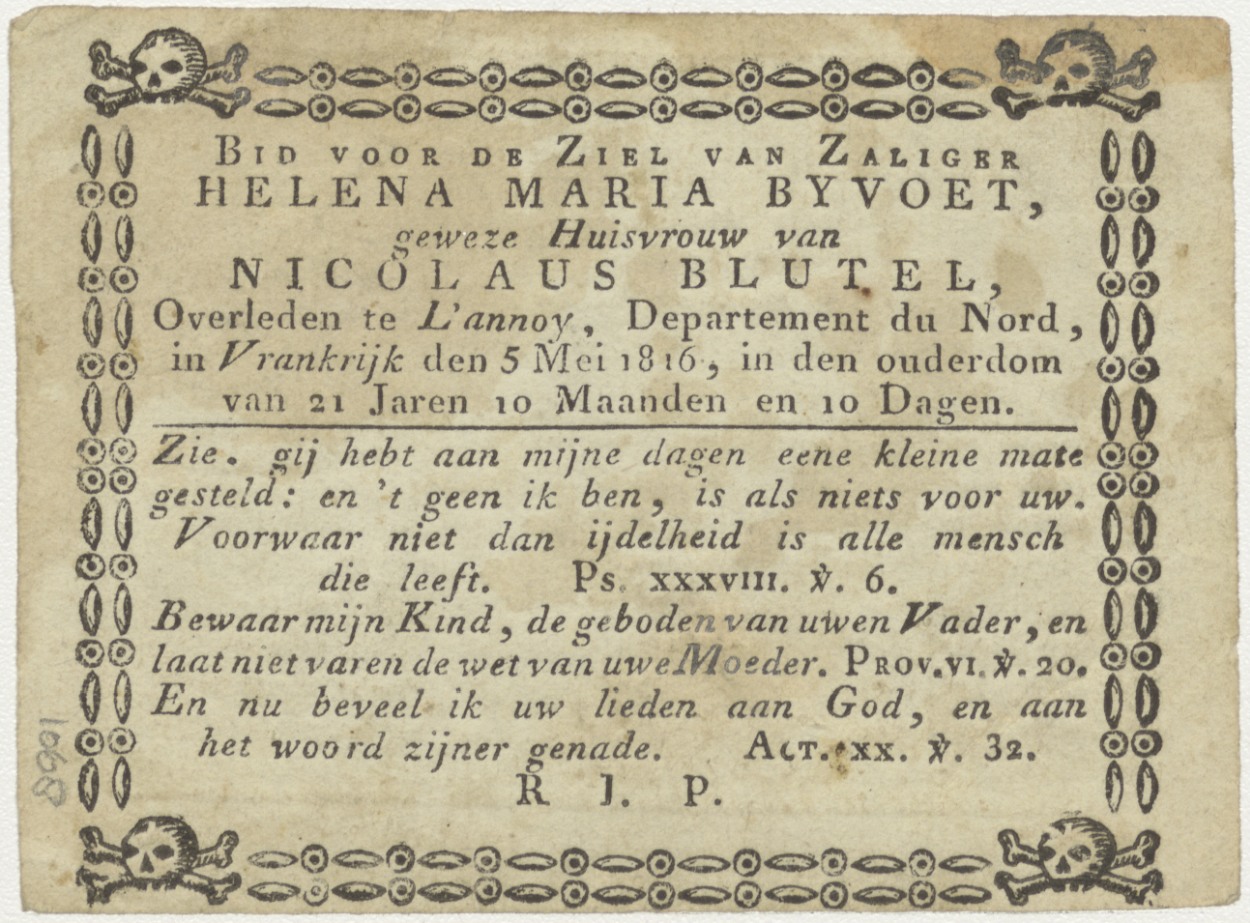 BID VOOR DE ZIEL VAN ZALIGER
HELENA MARIA BYVOET,
geweze Huisvrouw van
NICOLAUS BLUTEL,
Overleden te L'annoy, Departement du Nord,
in Vrankrijk den 5 Mei 1816, in den ouderdom
van 21 Jaren 10 Maanden en 10 Dagen.
Zie. gij hebt aan mijne dagen eene kleine mate
gesteld: en 't geen ik ben, is als niets voor uw.
Voorwaar niet dan ijdelheid is alle mensch
die leeft. Ps. XXXVIII. ℣. 6.
Bewaar mijn Kind, de geboden van uwen Vader, en
laat niet varen de wet van uwe Moeder. PROV. VI. ℣. 20.
En nu beveel ik uw lieden aan God, en aan
het woord zijner genade. ACT. XX. ℣. 32.
R I. P.
1068